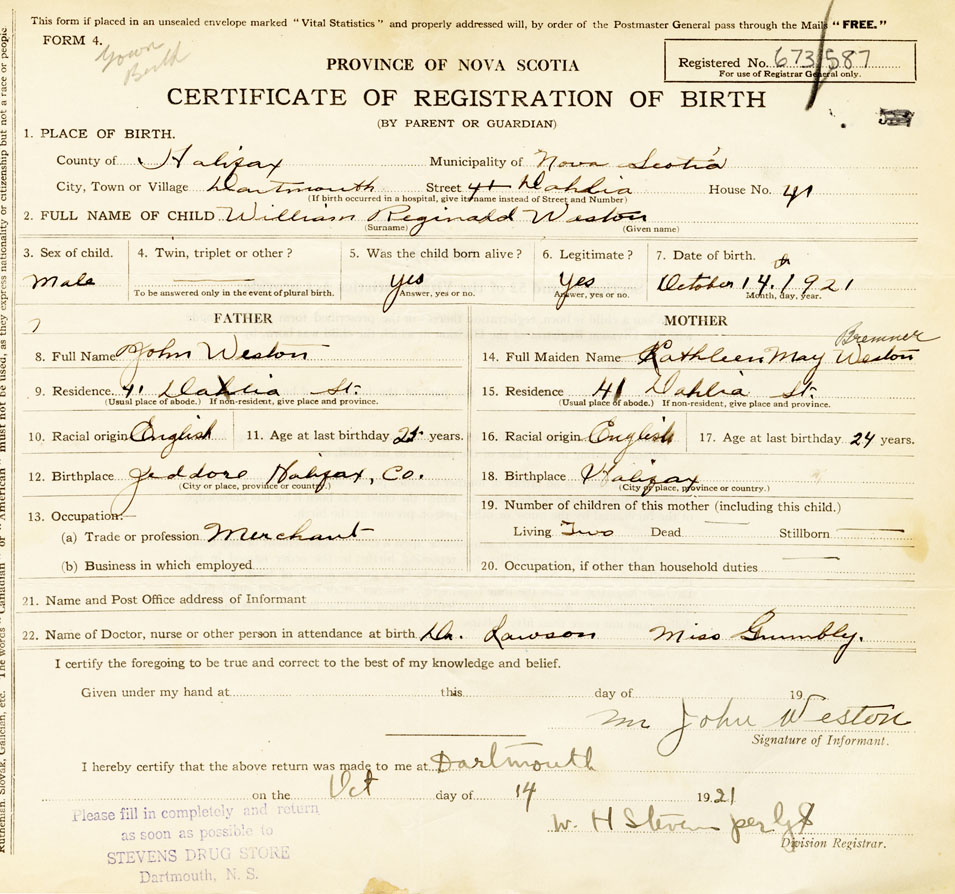 This form if placed in an unsealed envelope marked "Vital Statistics" and properly addressed will, by order of the Postmaster General pass through the Mails "FREE."
FORM 4.
Town
Berth
Registered No. 673587
For use of Registrar General only.
PROVINCE OF NOVA SCOTIA
CERTIFICATE OF REGISTRATION OF BIRTH
(BY PARENT OR GUARDIAN)
1. PLACE OF BIRTH.
County of Halifax Municipality of Nova Scotia
City, Town or Village Dartmouth Street 41 Dahlia House No. 41
(If birth occurred in a hospital, give its name instead of Street and Number)
2. FULL NAME OF CHILD William Reginald Weston
(Surname) (Given name)
3. Sex of child. 4. Twin, triplet or other? 5. Was the child born alive? 6. Legitimate? 7. Date of birth.
Male Yes Yes October 14th 1921
To be answered only in the event of plural birth. Answer, yes or no. Answer, yes or no. Month, day, year.
FATHER MOTHER
8. Full Name John Weston 14. Full Maiden Name Kathleen May Weston Bremner
9. Residence 41 Dahlia St. 15. Residence 41 Dahlia St.
(Usual place of abode.) If non-resident, give place and province. (Usual place of abode.) If non-resident, give place and province.
10. Racial origin English 11. Age at last birthday 25 years. 16. Racial origin English 17. Age at last birthday 24 years.
12. Birthplace Jeddore Halifax, Co. 18. Birthplace Halifax
(City or place, province or country.) (City or place, province or country.)
13. Occupation:— 19. Number of children of this mother (including this child.)
(a) Trade or profession Merchant Living Two Dead Stillborn
(b) Business in which employed 20. Occupation, if other than household duties
21. Name and Post Office address of Informant
22. Name of Doctor, nurse or other person in attendance at birth Dr. Lawson Miss Grumbly.
I certify the foregoing to be true and correct to the best of my knowledge and belief.
Given under my hand at this day of 19
Mr John Weston
Signature of Informant.
I hereby certify that the above return was made to me at Dartmouth
on the Oct day of 14 1921
W. H Stevens per
Division Registrar.
Please fill in completely and return
as soon as possible to
STEVENS DRUG STORE
Dartmouth, N. S.
Ruthenian, Slovak, Galician, etc. The words "Canadian" or "American" must not be used, as they express nationality or citizenship but not a race or people